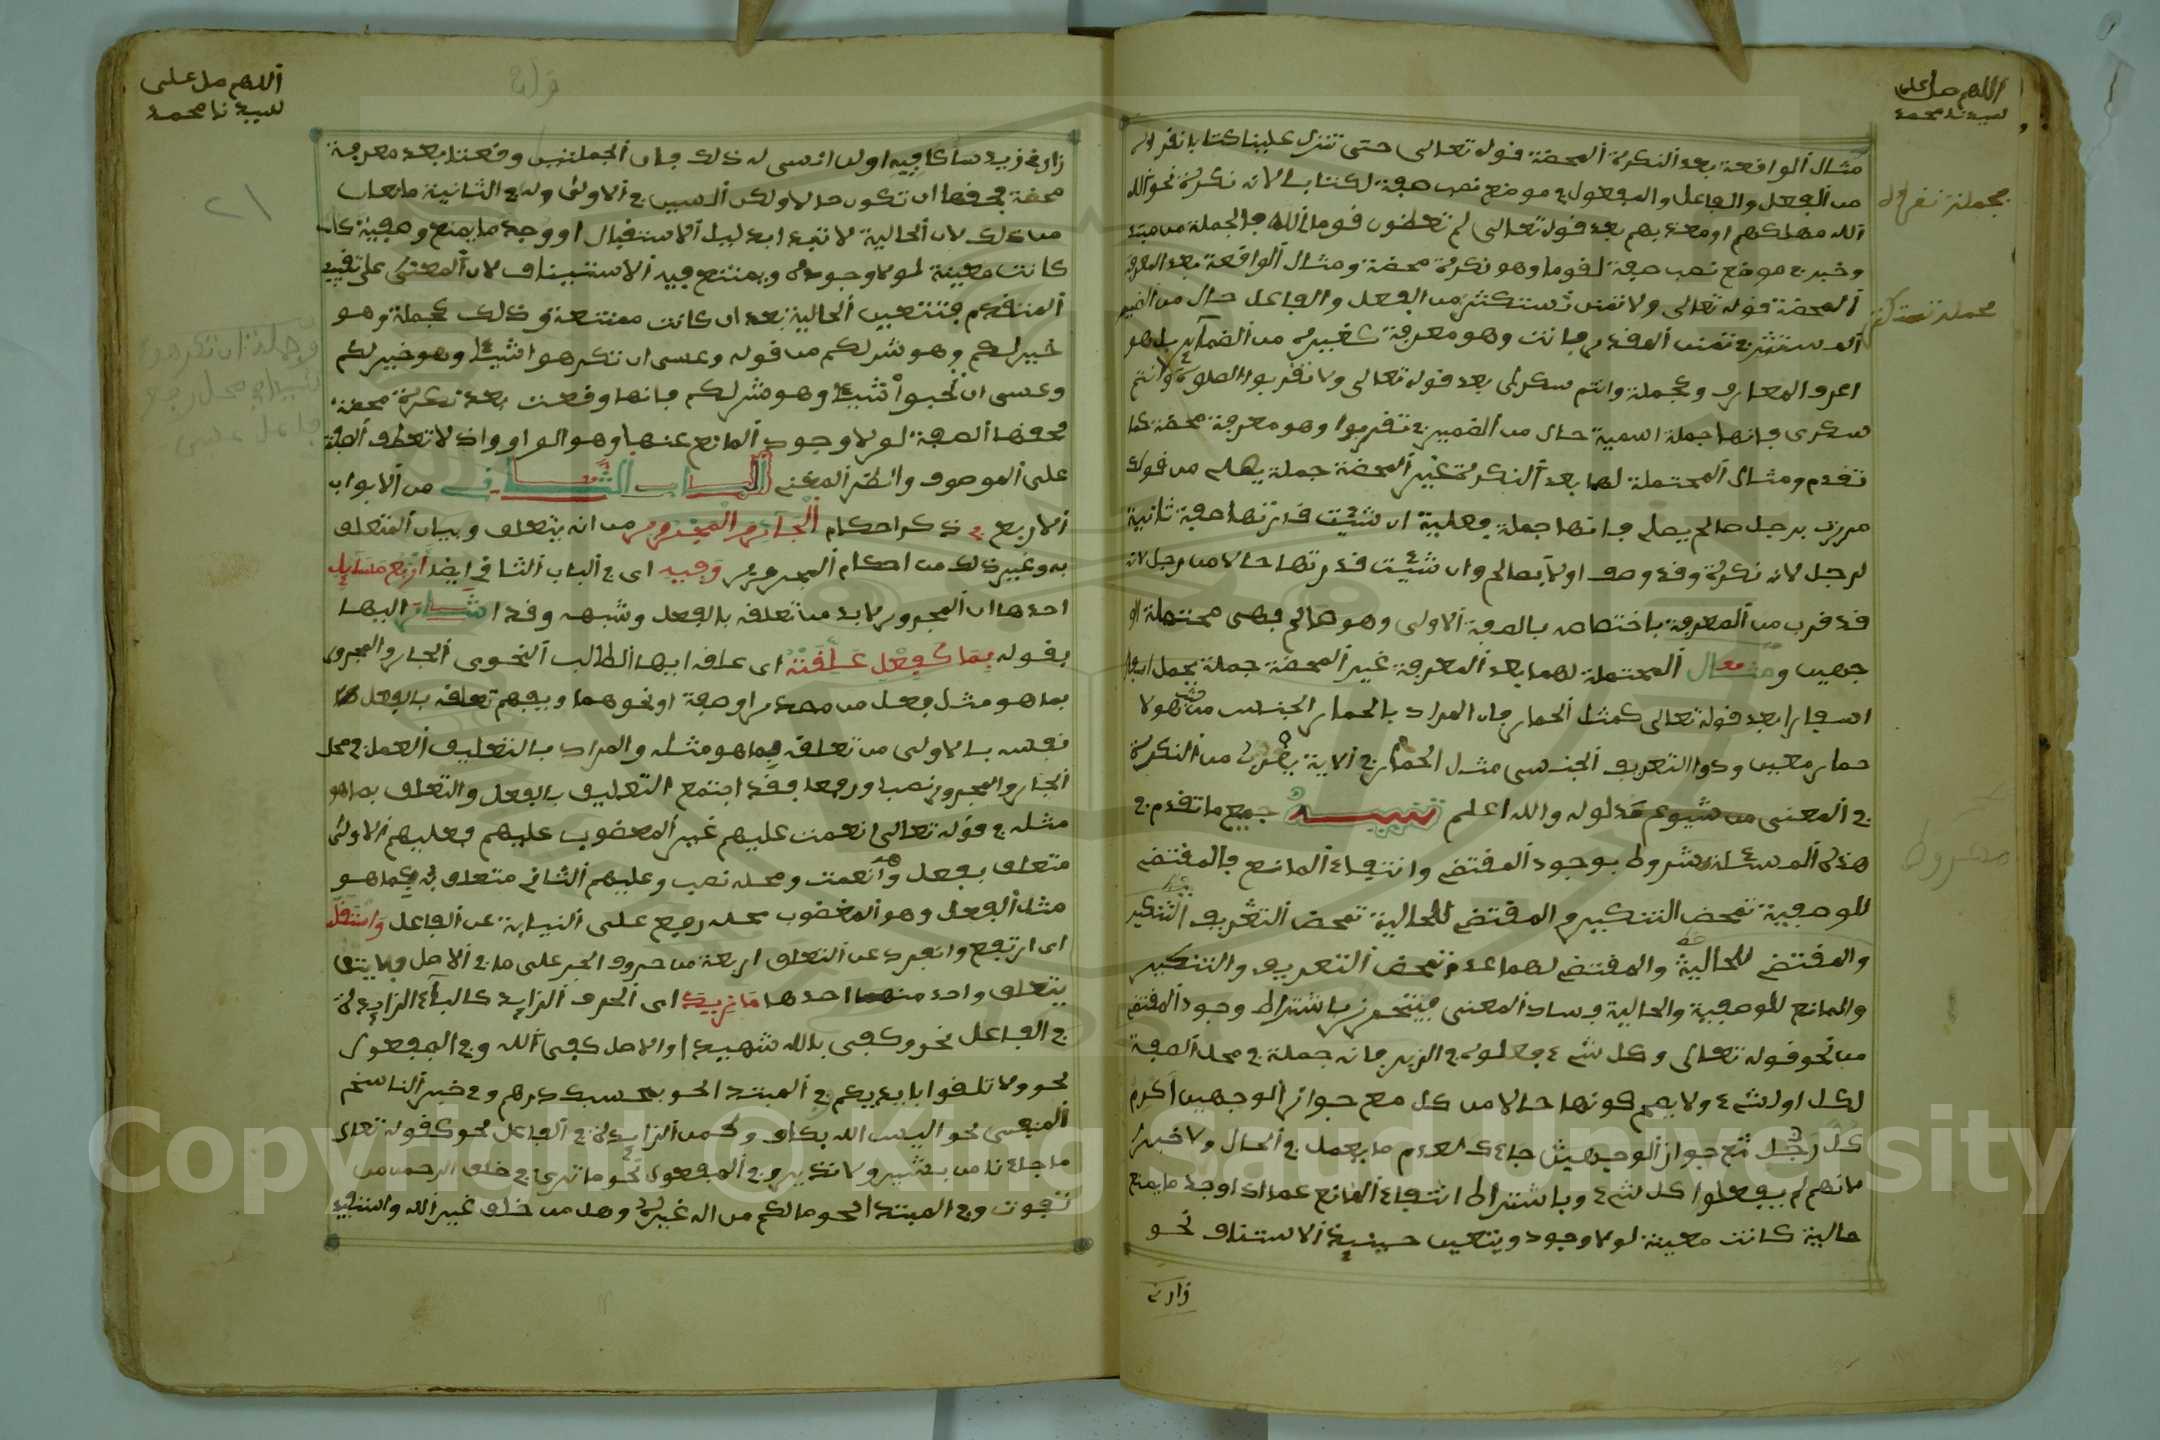 اللهم صل على
سيدنا محمد
مثال الواقعة بعد النكرة المحضة قوله تعالى حتى تنزل علينا كتابا نقرؤه
من الفعل والفاعل والمفعول في موضع نصب صفة لكتابا لانه نكرة نحو الله
الله مهلكهم او معذبهم بعد قوله تعالى لم تعظون قوما الله فالجملة من مبتد
وخبر في موضع نصب صفة لقوما وهو نكرة محضة ومثال الواقعة بعد المعرفة
المحضة قوله تعالى ولا تمنن تستكثر من الفعل والفاعل حال من الضمير
المستتر في تمنن المقدر بانت وهو معرفة كغيره من الضمائر بل هو
اعرف المعارف وكجملة وانتم سكرى بعد قوله تعالى ولا تقربوا الصلوة وانتم
سكرى فانها جملة اسمية حال من الضمير في تقربوا وهو معرفة محضة كما
تقدم ومثال المحتملة لهما بعد النكرة غير المحضة جملة يصلي من قولك
مررت برجل صالح يصلي فانها جملة فعلية ان شئت قدرتها صفة ثانية
لرجل لانه نكرة وقد وصف اولا بصالح وان شئت قدرتها حالا من رجل لانه
قد قرب من المعرفة باختصاصه بالصفة الاولى وهو صالح فهي محتملة الو
جهين ومثال المحتملة لهما بعد المعرفة غير المحضة جملة يحمل اسفارا
اسفارا بعد قوله تعالى كمثل الحمار فان المراد بالحمار الجنس من حيث هو لا
حمار معين وذو التعريف الجنسي مثل الحمار في الاية يقرب من النكرة
في المعنى من شيوع مدلوله والله اعلم تنبيه جميع ما تقدم في
هذه المسئلة مشروط بوجود المقتضي وانتفاء المانع فالمقتضي
للوصفية تمحض التنكير والمقتضي للحالية تمحض التعريف
والمقتضي للحالية والمقتضي لهما عدم تمحض التعريف والتنكير
والمانع للوصفية والحالية فساد المعنى فيتحرز باشتراط وجود المقتضي
من نحو قوله تعالى وكل شيء فعلوه في الزبر فانه جملة في محل الصفة
لكل او لشيء ولا يصح كونها حالا من كل مع جواز الوجهين اكرم
كل رجل مع جواز الوجهين جاءك لعدم ما يعمل في الحال ولا خبرا
لانهم لم يفعلوا كل شيء وباشتراط انتفاء المانع عما اذا وجد ما يمنع
حالية كانت معينة لولا وجوده ويتعين حينئذ الاستئناف نحو
زارني
بجملة نقرؤه
بجملة تستكثر
مشروط
اللهم صل على
سيدنا محمد
٢١
زارني زيد ساكافيه او لن انسى له ذلك فان الجملتين وقعتا بعد معرفة
محضة فحقها ان تكون حالا ولكن السين في الاولى ولن في الثانية مانعان
من ذلك لان الحالية لا تبتدا بدليل الاستقبال او وجد ما يمنع وصفية كان
كانت معينة لولا وجوده ويمتنع فيه الاستيناف لان المعنى على تقييد
المتقدم فتتعين الحالية بعد ان كانت ممتنعة وذلك كجملة وهو
خير لكم وهو شر لكم من قوله وعسى ان تكرهوا شيئا وهو خير لكم
وعسى ان تحبوا شيئا وهو شر لكم فانها وقعت بعد نكرة محضة
فحقها الصفة لولا وجود المانع عنها وهو الواو اذ لا تعطف الصفة
على الموصوف وانظر المغني الباب الثاني من الابواب
الاربع في ذكر احكام الجار والمجرور من انه يتعلق وبيان المتعلق
به وغير ذلك من احكام المجرور وفيه اي في الباب الثاني ايضا اربع مسايل
احدها ان المجرور لا بد من تعلقه بالفعل وشبهه وقد اشار اليها
بقوله بما كفعل علقنه اي علقه ايها الطالب النحوي الجار والمجرور
بما هو مثل فعل من مصدر او صفة او نحوهما ويفهم تعلقه بالفعل
نفسه بالاولى من تعلقه بما هو مثله والمراد بالتعليق العمل في محل
الجار والمجرور نصبا ورفعا وقد اجتمع التعليق بالفعل والتعلق بما هو
مثله في قوله تعالى انعمت عليهم غير المغضوب عليهم فعليهم الاولى
متعلق بفعل وهو انعمت ومحله نصب وعليهم الثاني متعلق بما هو
مثل الفعل وهو المغضوب محله رفع على النيابة عن الفاعل واستقل
اي ارتفع وانفرد عن التعلق اربعة من حروف الجر على ما في الاصل
يتعلق واحد منها احدها ما زيد اي الحرف الزايد كالباء الزايدة
في الفاعل نحو وكفى بالله شهيدا والاصل كفى الله وفي المفعول
نحو ولا تلقوا بايديكم في المبتدا نحو بحسبك درهم وفي خبر الناسخ
المنفي نحو اليس الله بكاف وكمن الزايدة في الفاعل نحو كقوله تعالى
ما جاءنا من بشير ولا نذير وفي المفعول نحو ما ترى في خلق الرحمن من
تفوت وفي المبتدا نحو ما لكم من اله غيره وهل من خلق غير الله
Copyright © King Saud University